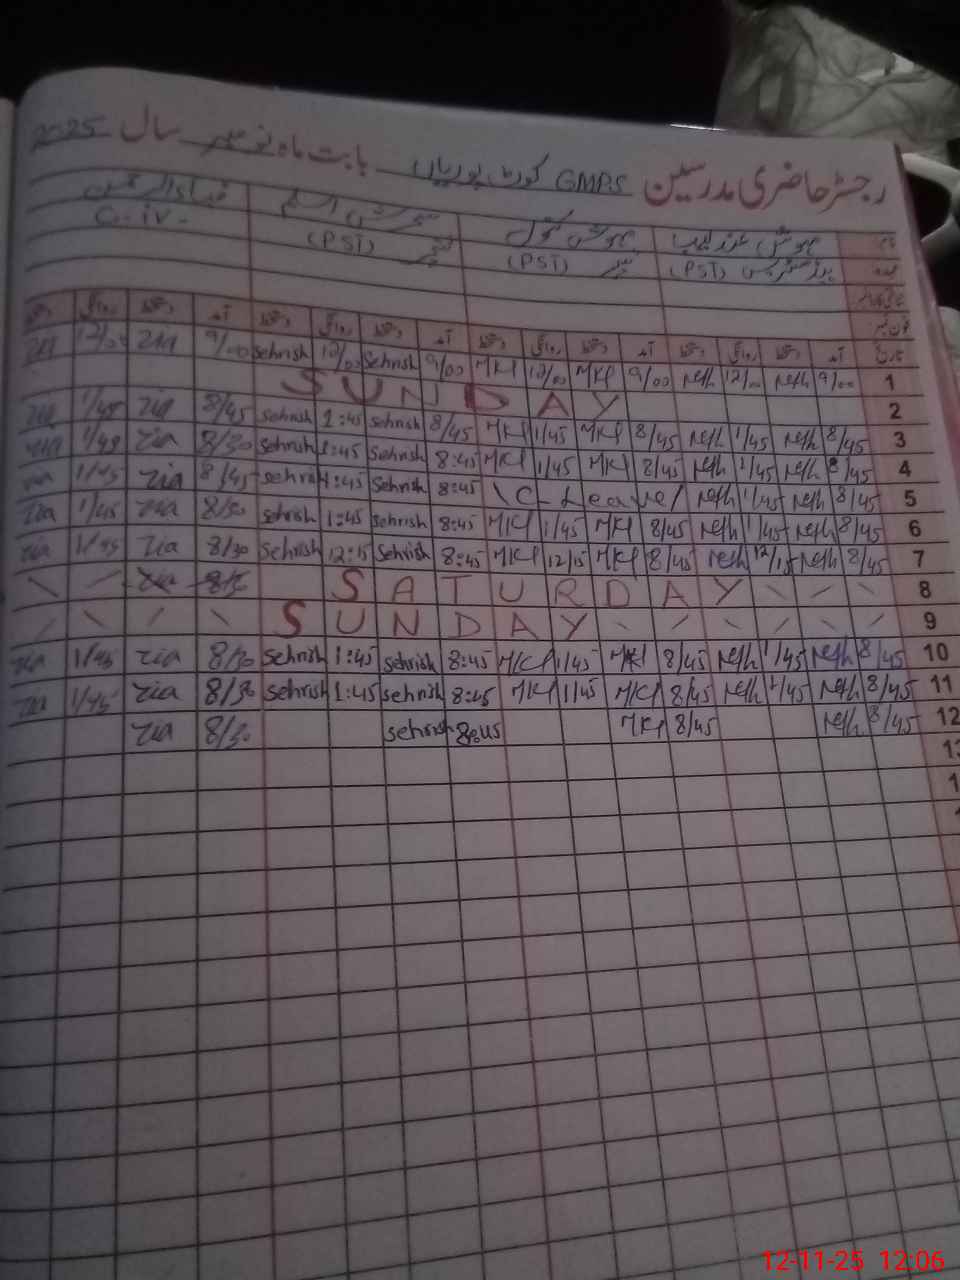 رجسٹر حاضری مدرسین GMPS کوٹ بوریاں بابت ماہ نومبر سال 2025
نام مہوش عندلیب مہوش کنول سحرش اسلم ضیاء الرحمٰن
عہدہ ہیڈ مسٹریس (PST) ٹیچر (PST) ٹیچر (PST) C-iv-
تاریخ آمد دستخط روانگی دستخط آمد دستخط روانگی دستخط آمد دستخط روانگی دستخط آمد دستخط روانگی دستخط
zia 12/00 zia 9/00 Sehrish 12/00 Sehrish 9/00 MKl 12/00 MKl 9/00 12/00 9/00 1
SUNDAY 2
zia 1/45 zia 8/45 Sehrish 1:45 Sehrish 8/45 MKl 1/45 MKl 8/45 1/45 8/45 3
zia 1/45 zia 8/30 Sehrish 1:45 Sehrish 8:45 MKl 1/45 MKl 8/45 1/45 8/45 4
zia 1/45 zia 8/45 Sehrish 1:45 Sehrish 8:45 C-Leave 1/45 8/45 5
zia 1/45 zia 8/30 Sehrish 1:45 Sehrish 8:45 MKl 1/45 MKl 8/45 1/45 8/45 6
zia 1/45 zia 8/30 Sehrish 12:15 Sehrish 8:45 MKl 12/15 MKl 8/45 12/15 8/45 7
zia 8/30 SATURDAY 8
SUNDAY 9
zia 1/45 zia 8/30 Sehrish 1:45 Sehrish 8:45 MKl 1/45 MKl 8/45 1/45 8/45 10
zia 1/45 zia 8/30 Sehrish 1:45 Sehrish 8:45 MKl 1/45 MKl 8/45 1/45 8/45 11
zia 8/30 Sehrish 8:45 MKl 8/45 8/45 12
13
12-11-25 12:06